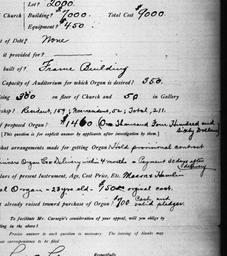 Lot? 2000.
Church { Building? $7000. Total Cost $9000.
Equipment? $450
of Debt? None
it provided for?
built of? Frame Building
Capacity of Auditorium for which Organ is desired? 350.
300 on Floor or Church and 50 in Gallery
Resident, 159, Nonresident, 52, Total, 211.
Proposed Organ? $1460. One Thousand Four Hundred and
Sixty Dollars
[This question is for explicit answer by applicants after investigation by them.]
at arrangements made for getting Organ? Hold provisional contract
Organ Co. Delivery within 4 months - Payment 30 days after
Delivery
lars of present Instrument, Age, Cost Price, Etc. Mason & Hamlin
Organ - 23 yrs. old - $500 original cost.
t already raised toward purchase of Organ? $700 Cash and
valid pledges.
To facilitate Mr. Carnegie's consideration of your appeal, will you oblige by
ling in the above?
Precise answer to each question is necessary. The leaving of blanks may
ous correspondence to be filed.
Respectfully,